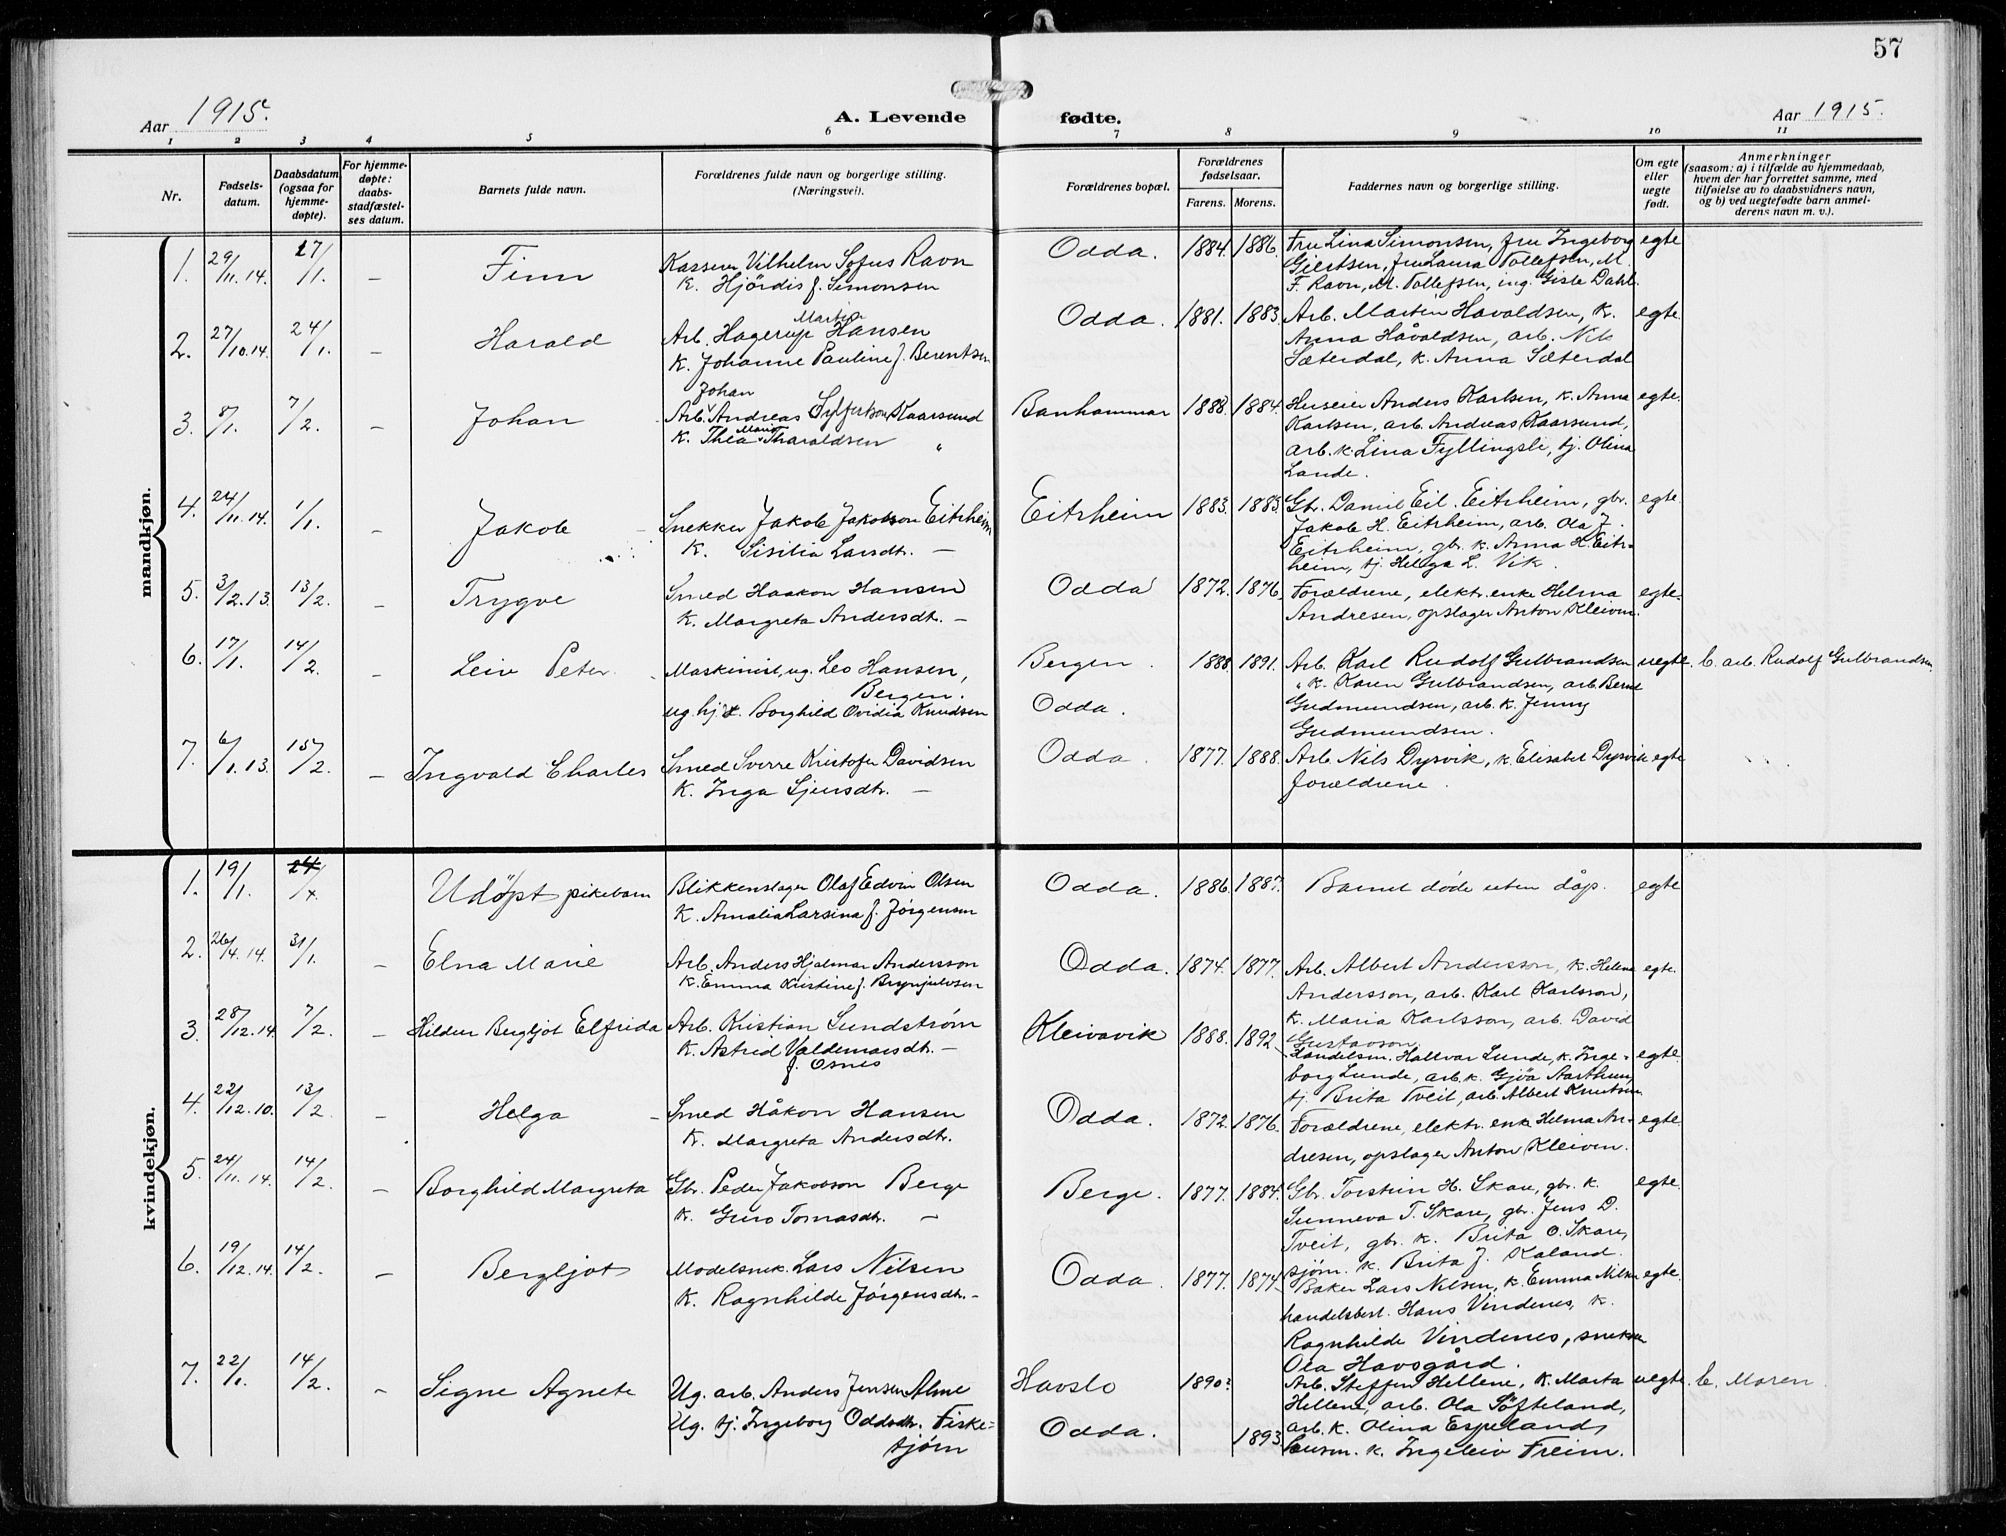 57
Aar 1915.
A. Levende fødte.
Aar 1915.
1 2 3 4 5 6 7 8 9 10 11
Nr.
Fødsels-
datum.
Daabsdatum
(ogsaa for
hjemme-
døpte).
For hjemme-
døpte:
daabs-
stadfæstel-
ses datum.
Barnets fulde navn.
Forældrenes fulde navn og borgerlige stilling.
(Næringsvei).
Forældrenes bopæl.
Forældrenes
fødselsaar.
Farens. Morens.
Faddernes navn og borgerlige stilling.
Om egte
eller
uegte
født.
Anmerkninger
(saasom: a) i tilfælde av hjemmedaab,
hvem der har forrettet samme, med
tilføielse av to daabsvidners navn,
og b) ved uegtefødte barn anmel-
derens navn m. v.).
mandkjøn.
1. 29/11.14. 17/1. – Finn
Kasserer Vilhelm Sofus Ravn
K. Hjördis f. Simonsen
Odda. 1884. 1886.
Fru Lina Simonsen, fru Ingeborg
Giertsen, fru Laura Tollefsen, M.
F. Ravn, M. Tollefsen, ing. Gisle Dahl.
egte
2. 27/10.14. 24/1. – Harald
Martin
Arb. Hagerup Hansen
K. Johanne Pauline f. Berentsen
Odda. 1881. 1883.
Arb. Martin Havaldsen, K.
Anna Håvaldsen, arb. Nils
Sæterdal, K. Anna Sæterdal
egte.
3. 8/1. 7/2. – Johan
Johan
Arb. Andreas Sylfertsen Kaarsund
Marie
K. Thea Tharaldsen "
Banhammar 1888. 1884.
Huseier Anders Karlsen, K. Anna
Karlsen, arb. Andreas Kaarsund,
arb. K Lina Fyllingsli, tj. Olina
Lande.
egte.
4. 24/11.14. 1/1. – Jakob
Snekker Jakob Jakobson Eitrheim
K. Sisilia Larsdtr. –
Eitrheim 1883. 1883.
Gbr. Daniel Eil. Eitrheim, gbr.
Jakob H. Eitrheim, arb. Ola J.
Eitrheim, gbr. K. Anna H. Eitr-
heim, tj. Helga L. Vik.
egte.
5. 3/2.13. 13/2. – Trygve
Smed Haakon Hansen
K. Margreta Andersdtr. –
Odda 1872. 1876.
Forældrene, elektr. enke Helma
Andresen, opslager Anton Kleiven.
egte.
6. 17/1. 14/2. – Leiv Peter
Maskinist, ug. Leo Hansen,
Bergen.
ug. hj. Borghild Ovidia Knudsen
Bergen.
Odda.
1888 1891.
Arb. Karl Rudolf Gulbrandsen
" K. Karen Gulbrandsen, arb. Bernt
Gudmundsen, arb. K. Jenny
Gudmundsen.
uegte. b. arb. Rudolf Gulbrandsen
7. 6/1.13. 15/2. – Ingvald Charles
Smed Sverre Kristofer Davidsen
K. Inga Sjursdtr. –
Odda. 1877. 1888.
Arb. Nils Dysvik, K. Elisabet Dysvik
forældrene.
egte
kvindekjøn.
1. 19/1. Udöpt pikebarn
Blikkenslager Olaf Edvin Olsen
K. Amalia Larsina f. Jørgensen
Odda. 1886. 1887.
Barnet døde uten dåp.
egte
2. 26/4.14. 31/1. – Elna Marie
Arb. Anders Hjalmar Andersson
K. Emma Kristine f. Brynjulvsen
Odda. 1874. 1877.
Arb. Albert Andersson, K. Helene
Andersson, arb. Karl Karlsson,
K. Maria Karlsson, arb. David
Gustavson
egte.
3. 28/12.14. 7/2. – Hildur Bergljot Elfrida
Arb. Kristian Sundström
K. Astrid Valdemarsdtr. –
f. Osnes
Kleivavik 1888. 1892
Handelsm. Hallvar Lunde, K. Inge-
borg Lunde, arb. K. Gjöa Aarthun,
tj. Brita Tveit, arb. Albert Knutsen
egte.
4. 22/12.10. 13/2. – Helga
Smed Håkon Hansen
K. Margreta Andersdtr.
Odda. 1872. 1876.
Forældrene, elektr. enke Helma An-
dresen, opslager Anton Kleiven.
egte.
5. 24/11.14. 14/2. – Borghild Margreta
Gbr. Peder Jakobson Berge
K. Guro Tomasdtr. –
Berge. 1877. 1884.
Gbr. Torstein H. Skare, gbr. K.
Sunneva T. Skare, gbr. Jens D.
Tveit, gbr. K. Brita O. Skare,
sjøm. K. Brita J. Kaland.
egte.
6. 19/12.14. 14/2. – Bergljot
Modelsnek. Lars Nilsen
K. Ragnhilde Jørgensdtr. –
Odda. 1877. 1874
Baker Lars Nilsen, K. Emma Nilsen
handelsbest. Hans Vindenes, K.
Ragnhilde Vindenes, snekker
Ola Havsgård.
egte.
7. 22/1. 14/2. – Signe Agnete
Ug. arb. Anders Jensen Alme
Ug. tj. Ingeborg Oddsdtr. Fiske-
tjørn
Havslo 1890?
Odda. 1893
Arb. Steffen Hellene, K. Marta
Hellene, arb. Ola Söfteland,
arb. K. Olina Espeland,
K. Ingeleiv Freim.
uegte. b. Moren.